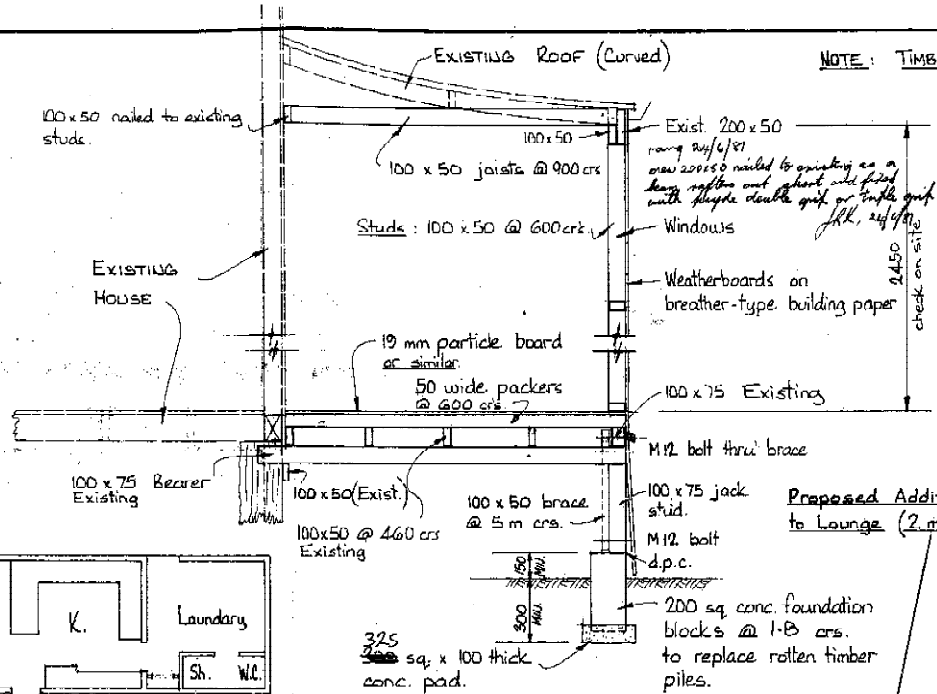 EXISTING ROOF (Curved)
NOTE: TIMB
100 x 50 nailed to existing
studs.
100x50
Exist. 200 x 50
24/6/81
new 200x50 nailed to existing as a
beam rafters cut short and fixed
with purple double grip or triple grip
24/6/81
100 x 50 joists @ 900 crs
Studs: 100 x 50 @ 600 crs
Windows
2450
check on site
EXISTING
HOUSE
Weatherboards on
breather-type building paper
19 mm particle board
or similar.
50 wide packers
@ 600 crs
100 x 75 Existing
M12 bolt thru' brace
100 x 75 Bearer
Existing
100 x 50 (Exist.)
100x50 @ 460 crs
Existing
100 x 50 brace
@ 5 m crs.
100 x 75 jack
stud.
Proposed Addi
to Lounge (2.
M12 bolt
d.p.c.
150
MIN.
300
MIN.
K.
Laundary
Sh.
W.C.
200 sq. conc. foundation
blocks @ 1·8 crs.
to replace rotten timber
piles.
325
sq. x 100 thick
conc. pad.